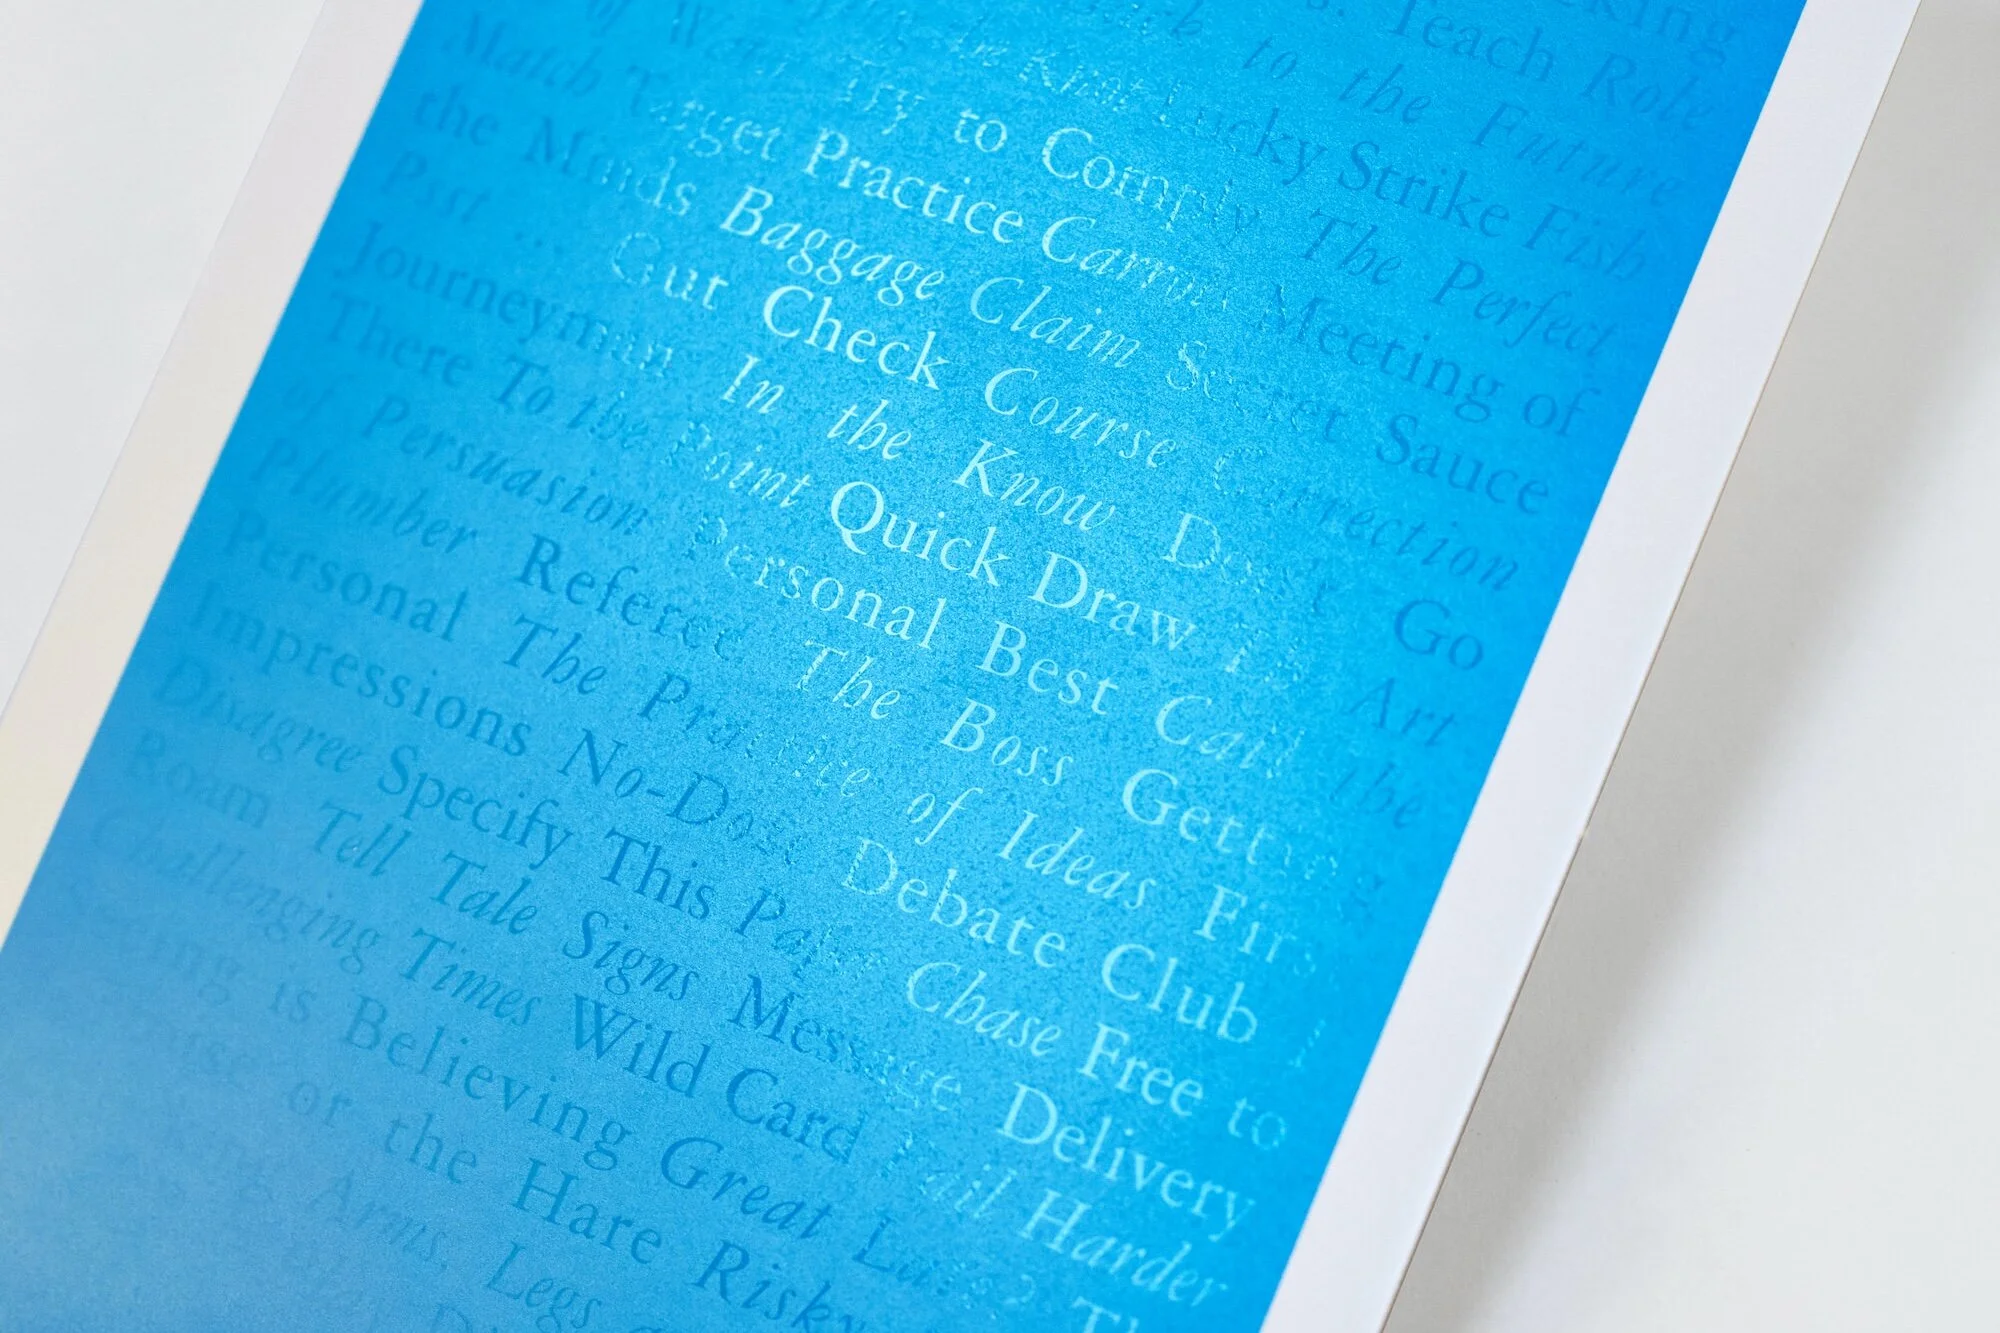 Teach Role
to the Future
Lucky Strike Fish
of Try to Comply The Perfect
Match Target Practice Carrot Meeting of
the Minds Baggage Claim Secret Sauce
Past ... Gut Check Course Correction
Journeyman In the Know Don't Go
There To the Point Quick Draw Art
of Persuasion Personal Best Call the
Plumber Referee The Boss Getting
Personal The of Ideas First
Impressions Debate Club I
Disagree Specify This Paper Chase Free to
Roam Tell Tale Signs Message Delivery
Challenging Times Wild Card Fail Harder
Seeing is Believing Great
or the Hare Risky
Arms, Legs